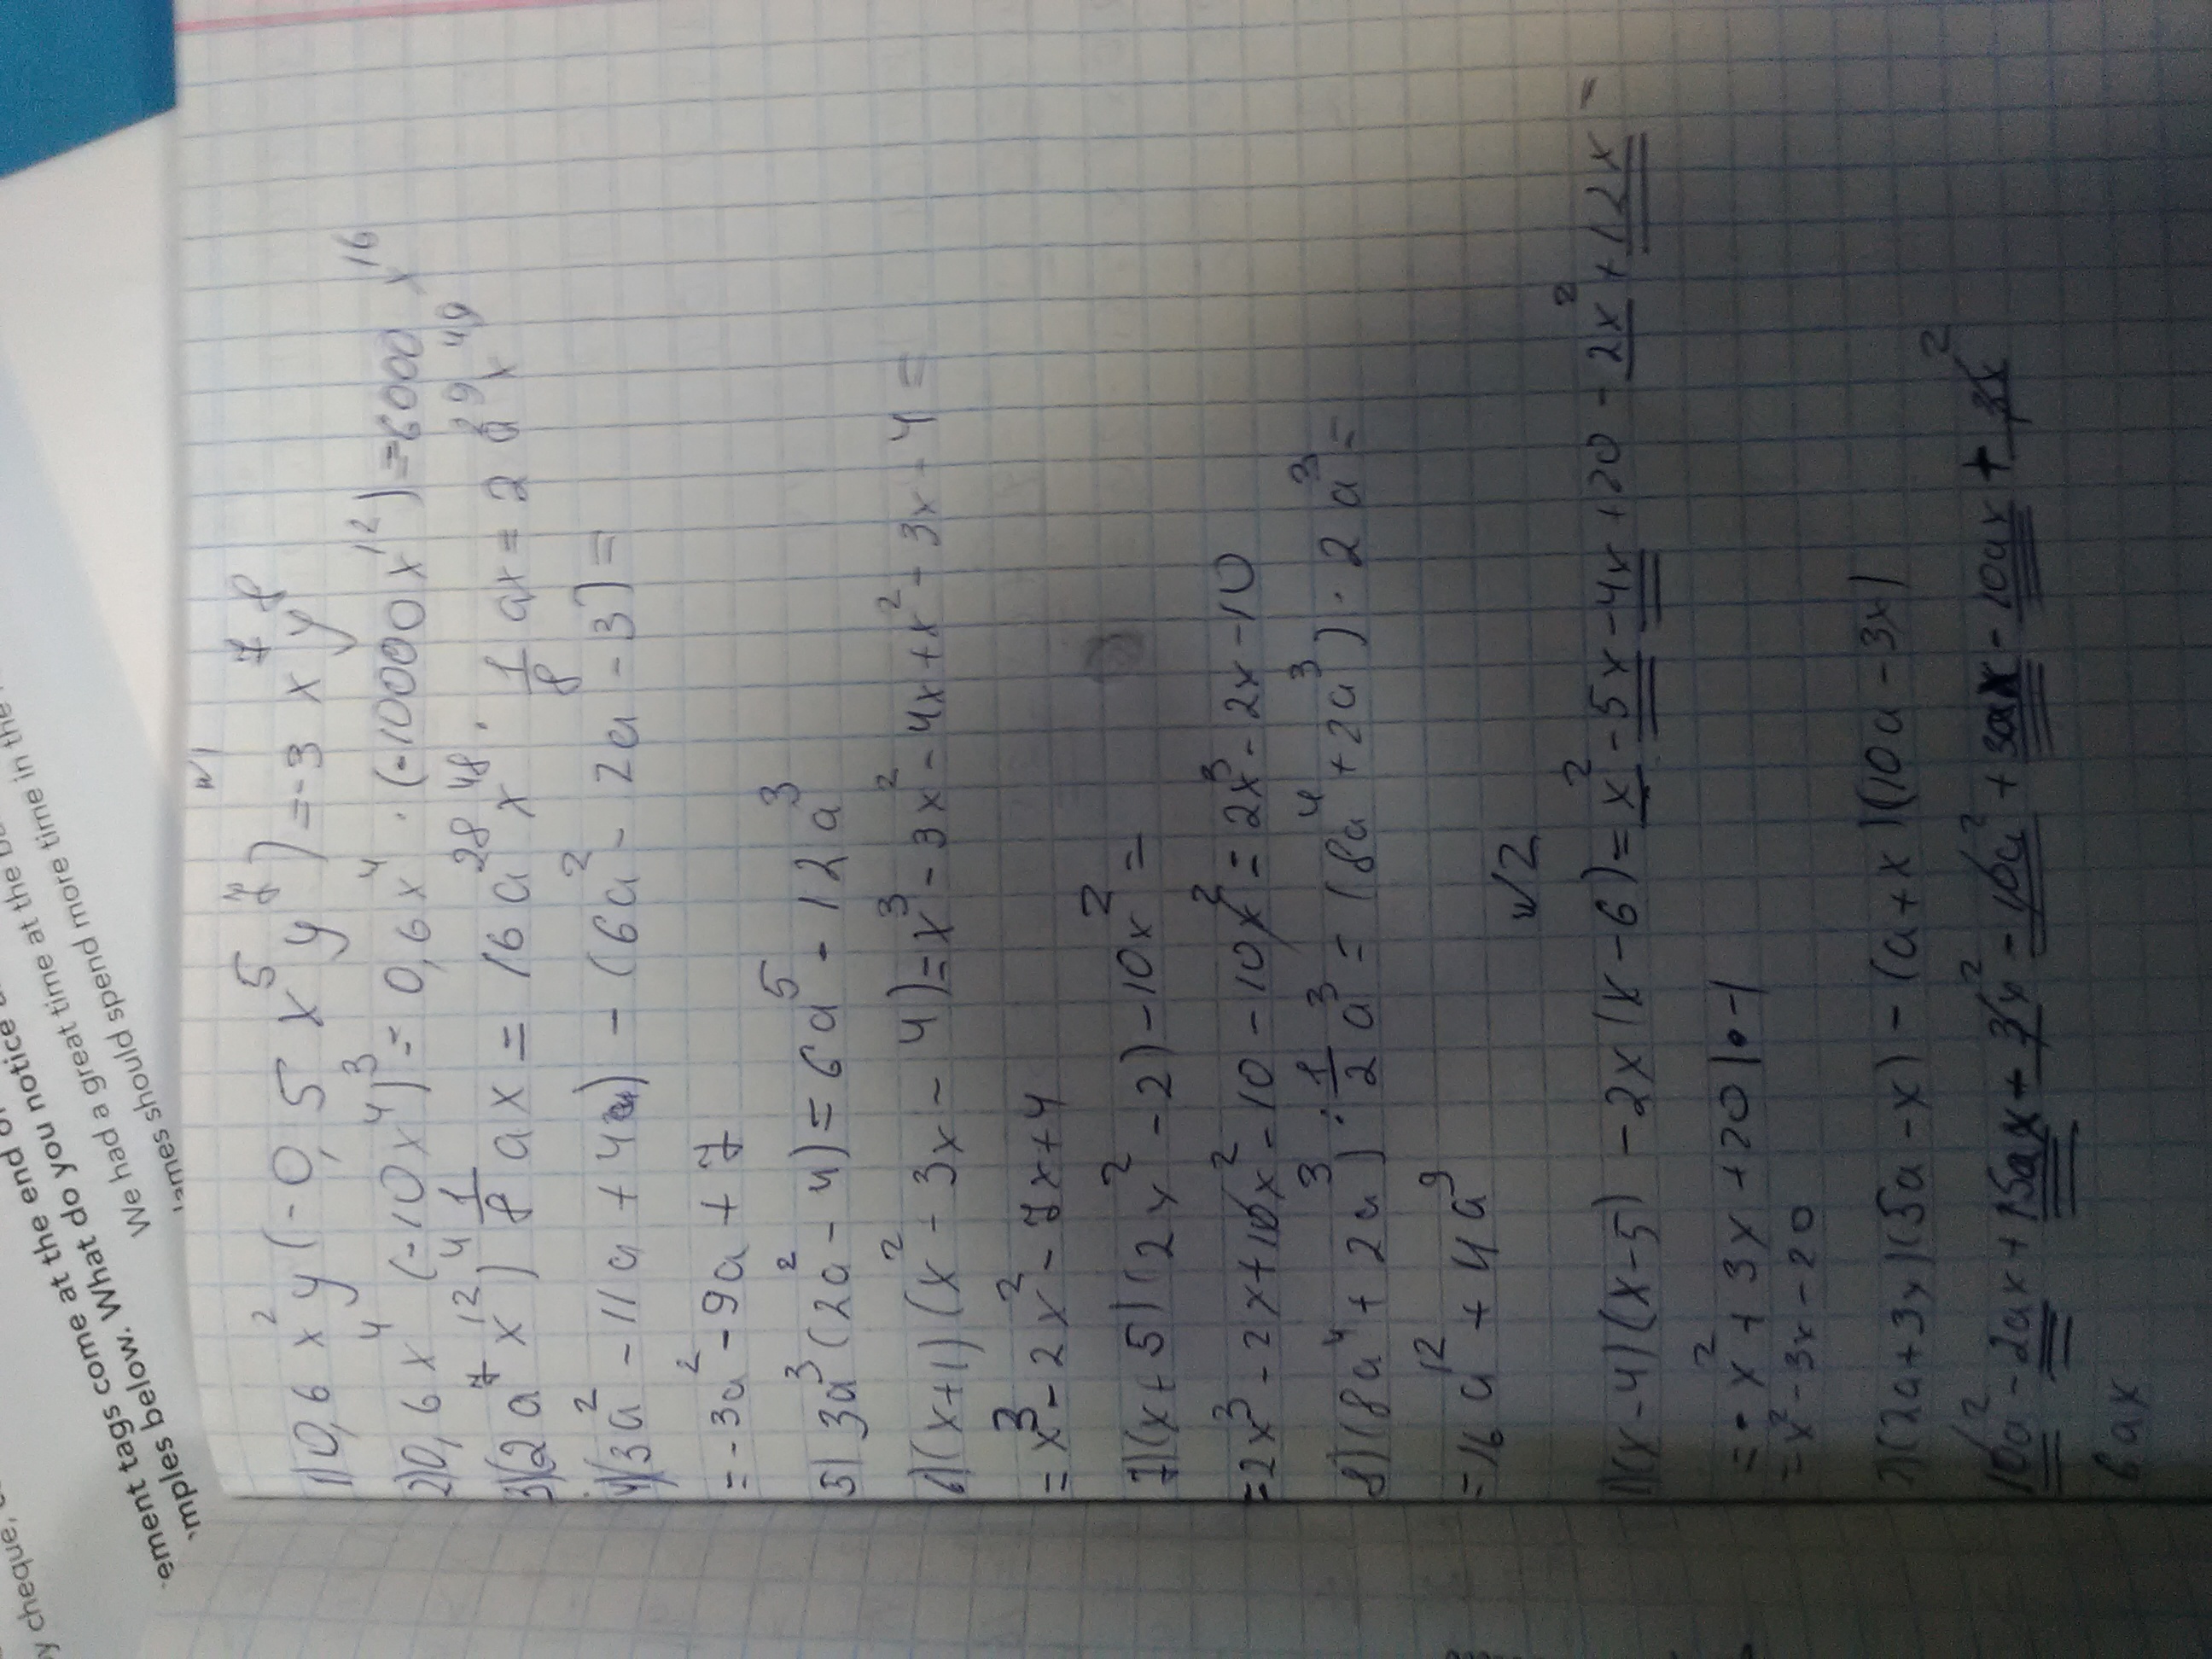 y cheque,
come at the end of
you notice
We had a great time at the
ement tags come at the
mples below. What do you notice
We had a great time in the
James should spend more time in the
№1
1) 0,6 x² y (-0,5 x⁵ y⁷) = -3 x⁷ y⁸
2) 0,6 x⁴ (-10 x⁴)³ = 0,6 x⁴ · (-10000 x¹²) = 6000 x¹⁶
3) (2 a⁷ x¹²)⁴ 1/8 ax = 16 a²⁸ x⁴⁸ · 1/8 ax = 2 a²⁹ x⁴⁹
4) (3a² - 11a + 4) - (6a² - 2a - 3) =
= -3a² - 9a + 7
5) 3a³ (2a² - 4) = 6a⁵ - 12a³
6) (x+1) (x² - 3x - 4) = x³ - 3x² - 4x + x² - 3x - 4 =
= x³ - 2x² - 7x + 4
7) (x+5) (2x² - 2) - 10x² =
= 2x³ - 2x + 10x² - 10 - 10x² = 2x³ - 2x - 10
8) (8a⁴ + 2a³) : 1/2 a³ = (8a⁴ + 2a³) · 2a³ =
= 16a¹² + 4a⁹
№2
1) (x-4) (x-5) - 2x (x-6) = x² - 5x - 4x + 20 - 2x² + 12x =
= -x² + 3x + 20 | · -1
= x² - 3x - 20
2) (2a+3x) (5a-x) - (a+x) (10a-3x)
10a² - 2ax + 15ax + 3x² - 10a² + 3ax - 10ax + 3x²
6ax